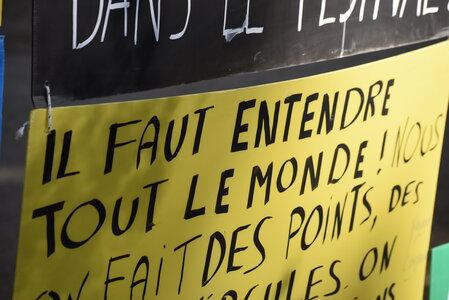 DANS LE FESTIVAL
IL FAUT ENTENDRE
TOUT LE MONDE! NOUS
ON FAIT DES POINTS, DES
ON